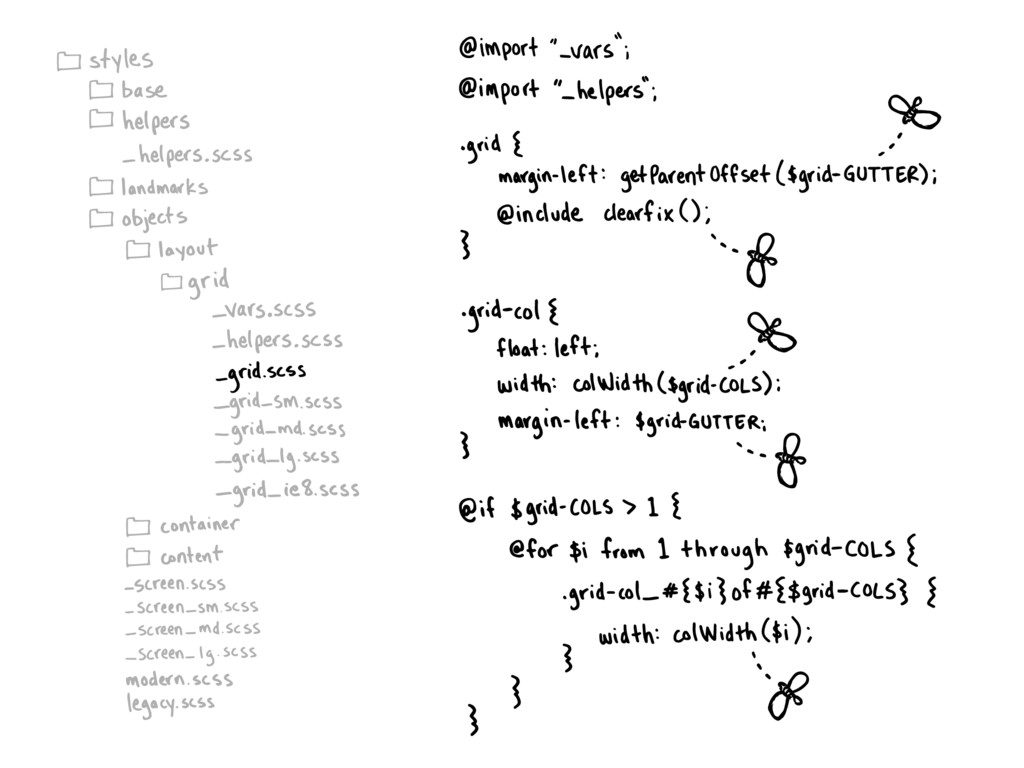 styles
base
helpers
_helpers.scss
landmarks
objects
layout
grid
_vars.scss
_helpers.scss
_grid.scss
_grid_sm.scss
_grid_md.scss
_grid_lg.scss
_grid_ie8.scss
container
content
_screen.scss
_screen_sm.scss
_screen_md.scss
_screen_lg.scss
modern.scss
legacy.scss
@import "_vars";
@import "_helpers";
.grid {
margin-left: getParentOffset($grid-GUTTER);
@include clearfix();
}
.grid-col {
float: left;
width: colWidth($grid-COLS);
margin-left: $grid-GUTTER;
}
@if $grid-COLS > 1 {
@for $i from 1 through $grid-COLS {
.grid-col_#{$i}of#{$grid-COLS} {
width: colWidth($i);
}
}
}